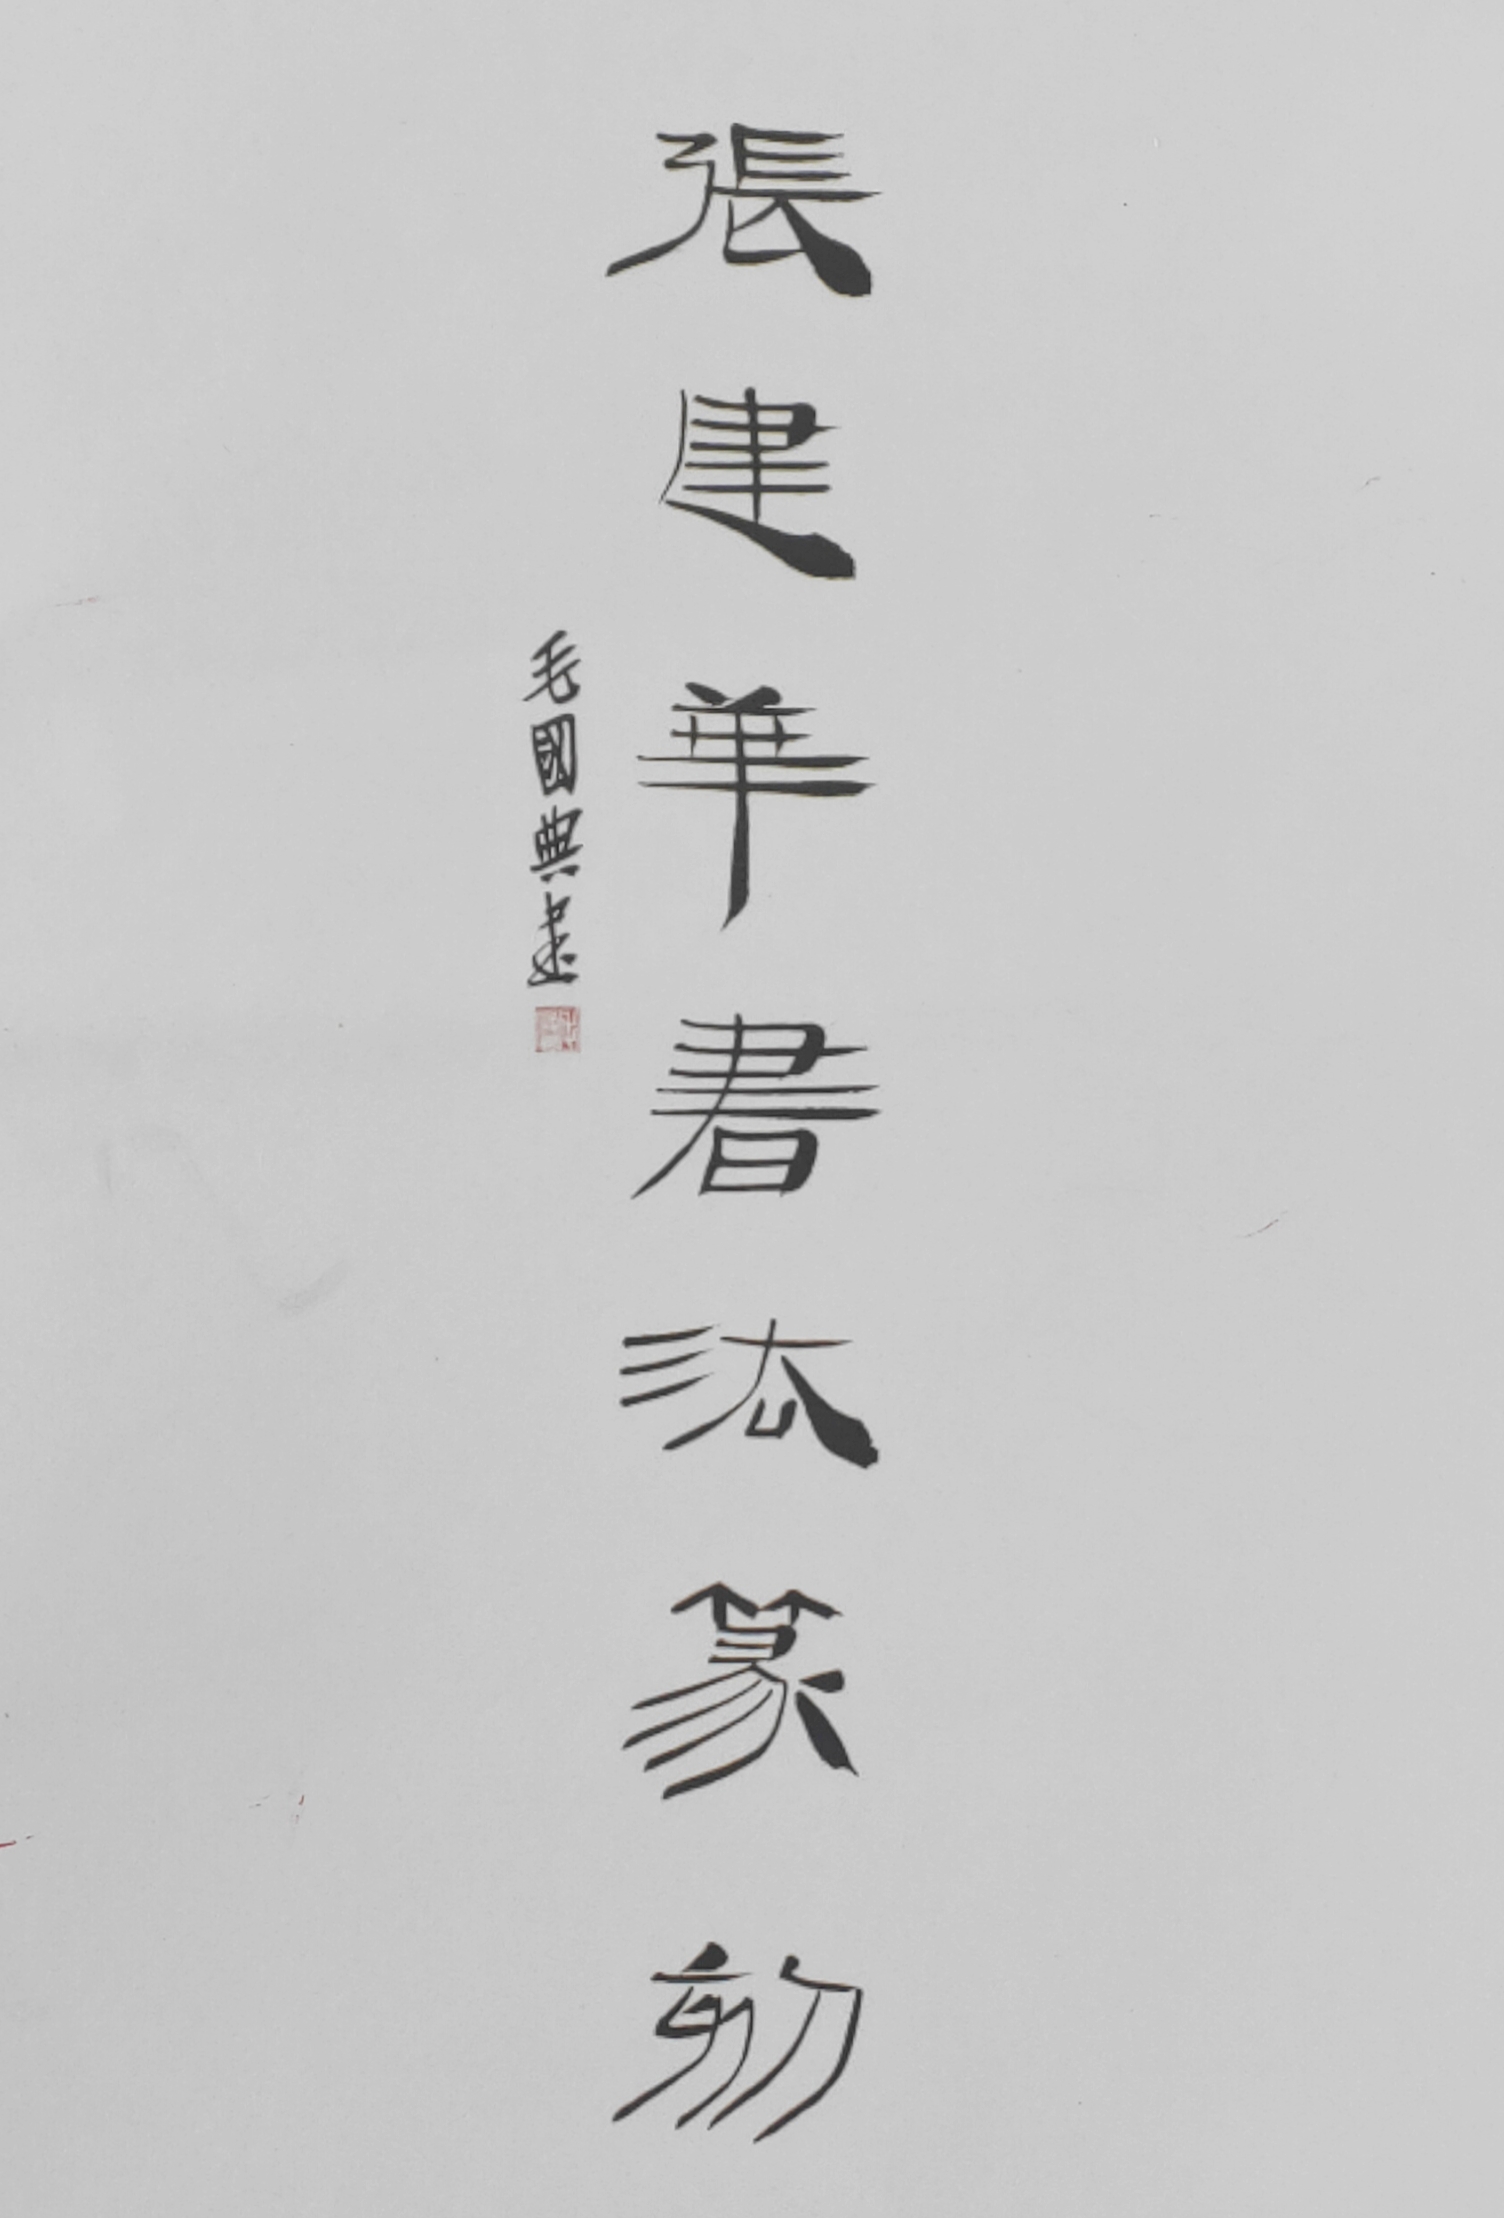 張建華書法篆刻
毛國典書